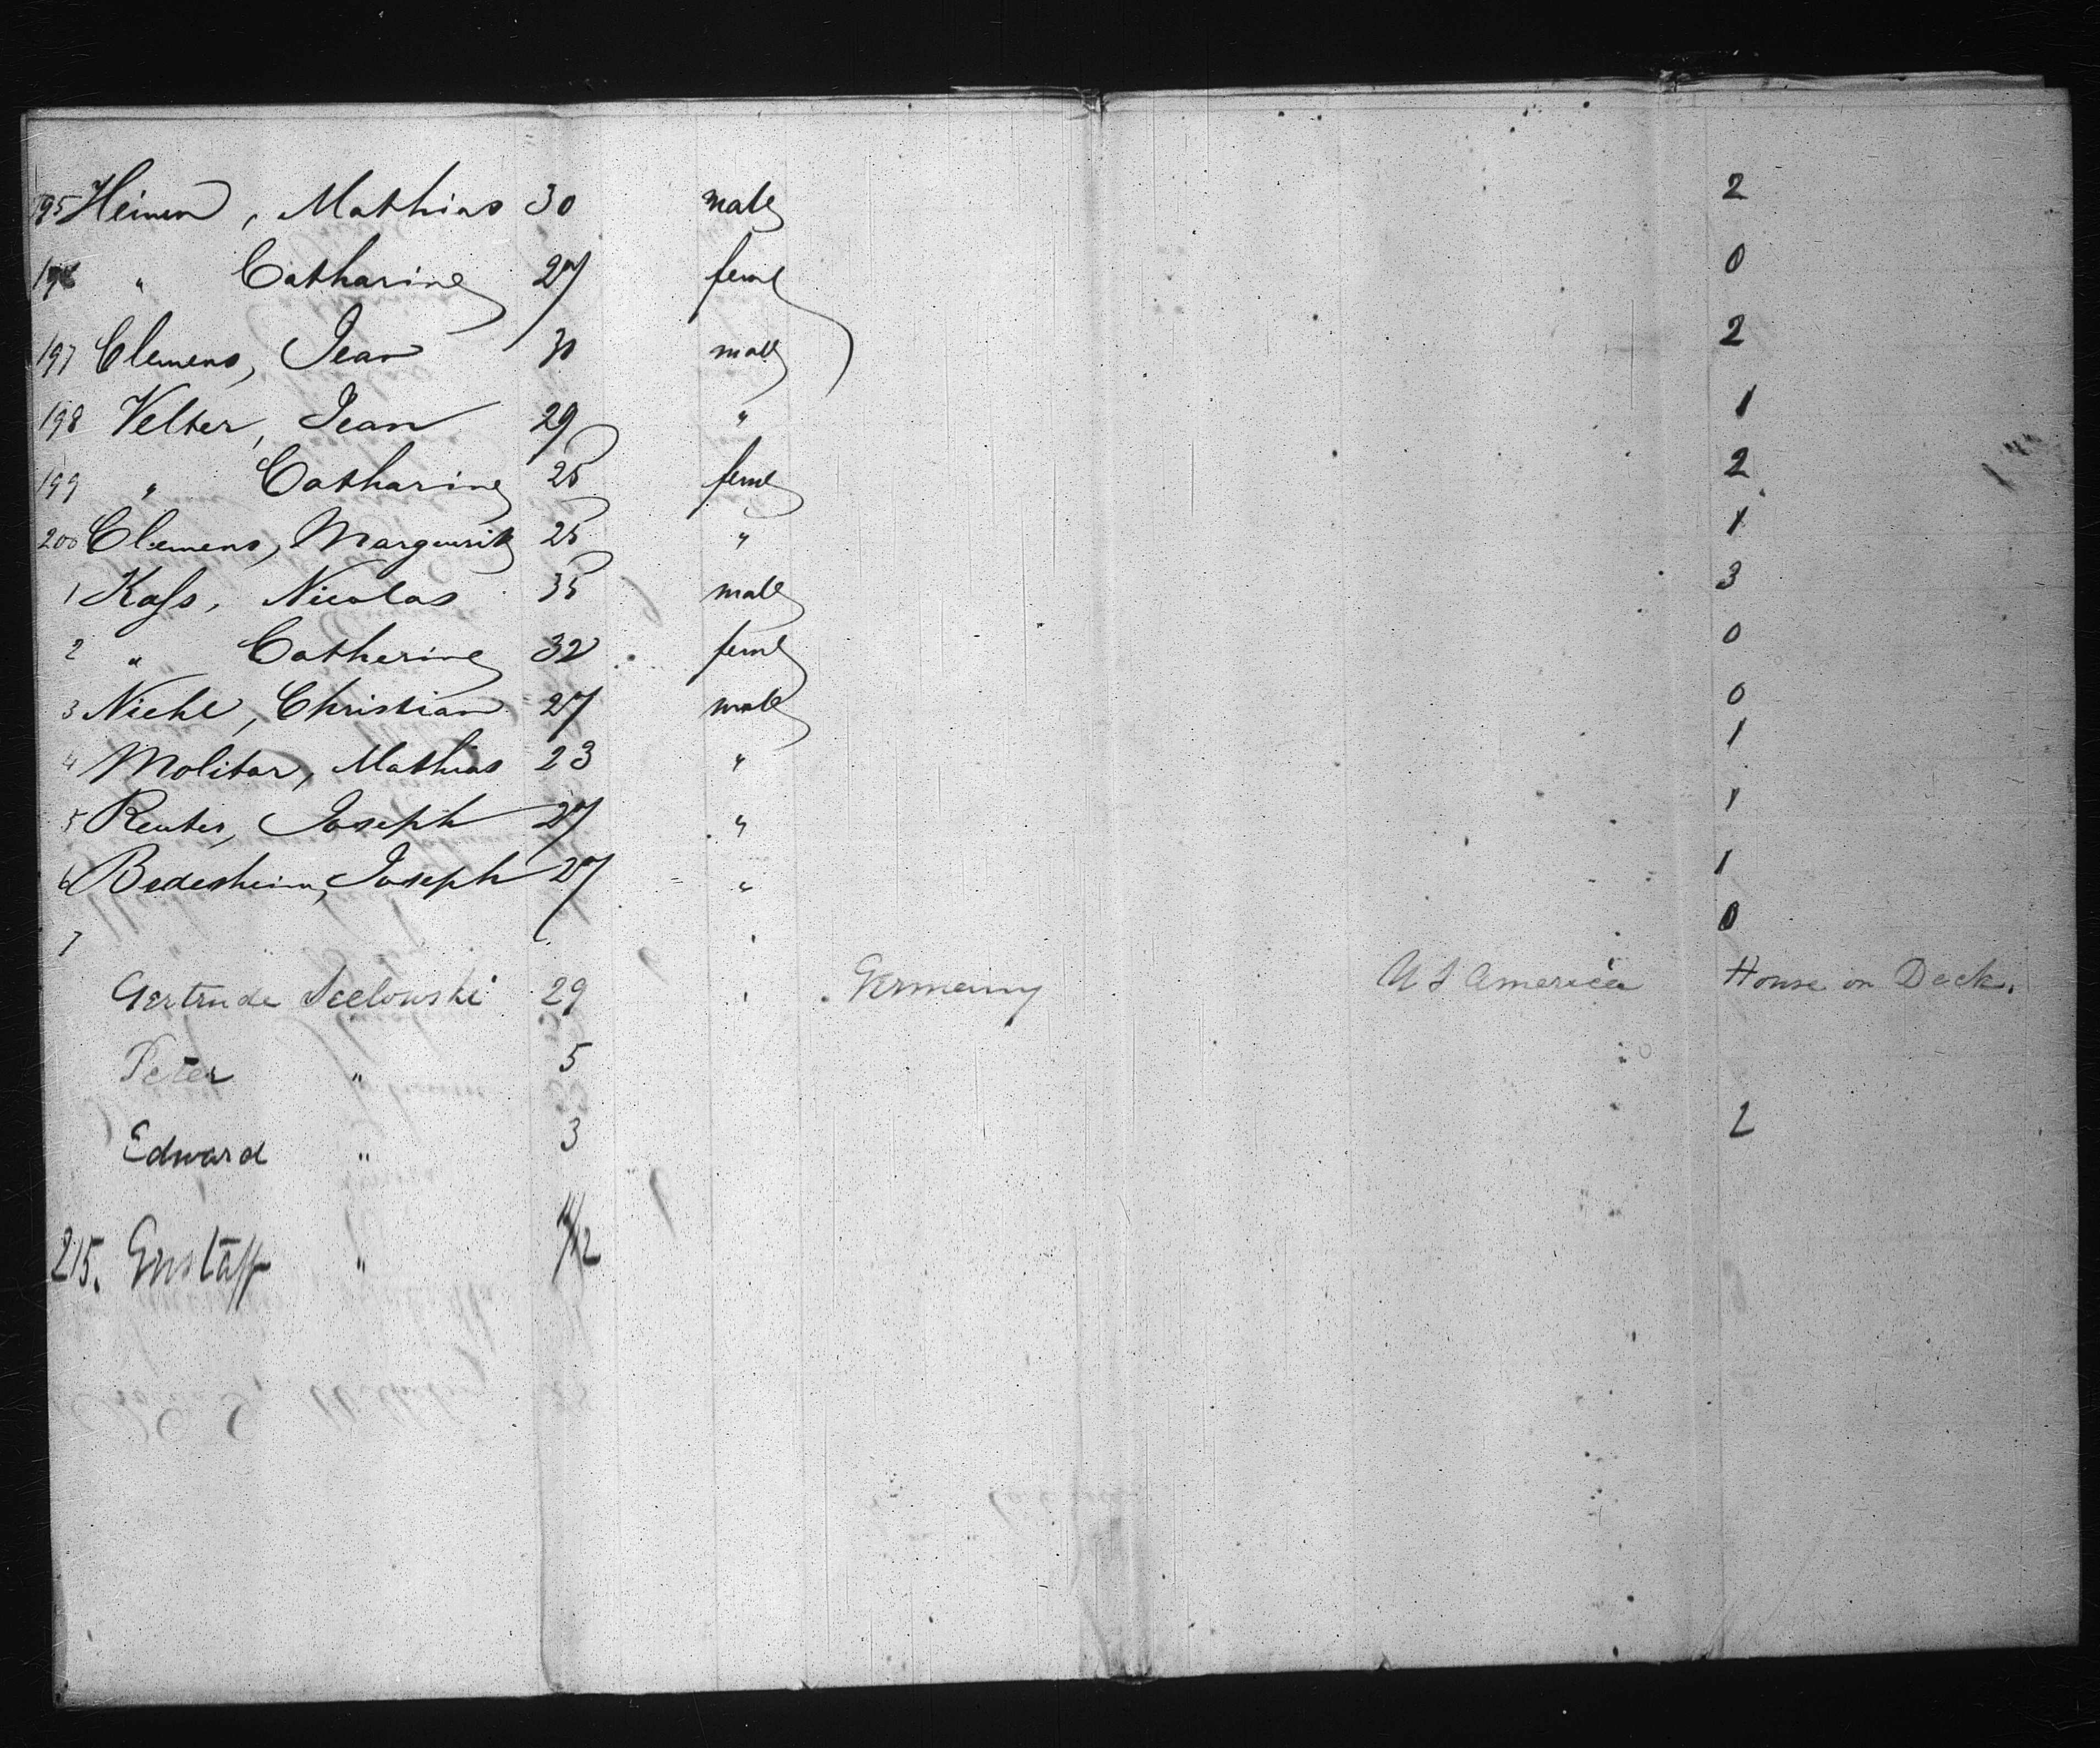 195 Heinen, Mathias 30 male 2
196 " Catharine 27 feml 0
197 Clemens, Jean 30 male 2
198 Velter, Jean 29 " 1
199 " Catharine 25 feml 2
200 Clemens, Marguerite 25 " 1
1 Kass, Nicolas 35 male 3
2 " Catherine 32 feml 0
3 Niehl, Christian 27 male 0
4 Molitor, Mathias 23 " 1
5 Reuter, Joseph 27 " 1
6 Bedesheim, Joseph 27 " 1
7 0
Gertrude Seelowski 29 Germany U S America House on Deck.
Peter " 5
Edward " 3 2
215. Gustaff " 11/12